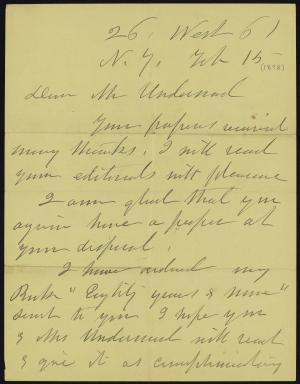 26, West 61
N. Y. Feb 15
(1898)
Dear Mr Underwood
Your papers received
many thanks. I will read
your editorials with pleasure
I am glad that you
again have a paper at
your disposal.
I have ordered my
Book "Eighty years & more"
sent to you I hope you
& Mrs Underwood will read
& give it as complimentary